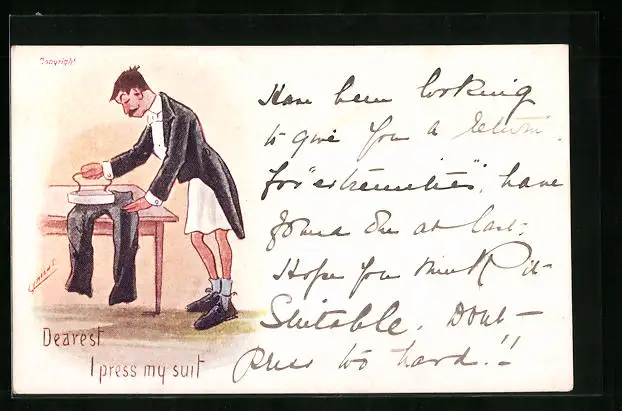 Copyright
Have been looking
to give you a return
for "extremities", have
found one at last.
Hope you think it
Suitable. Dont
press too hard!!
Dearest
I press my suit